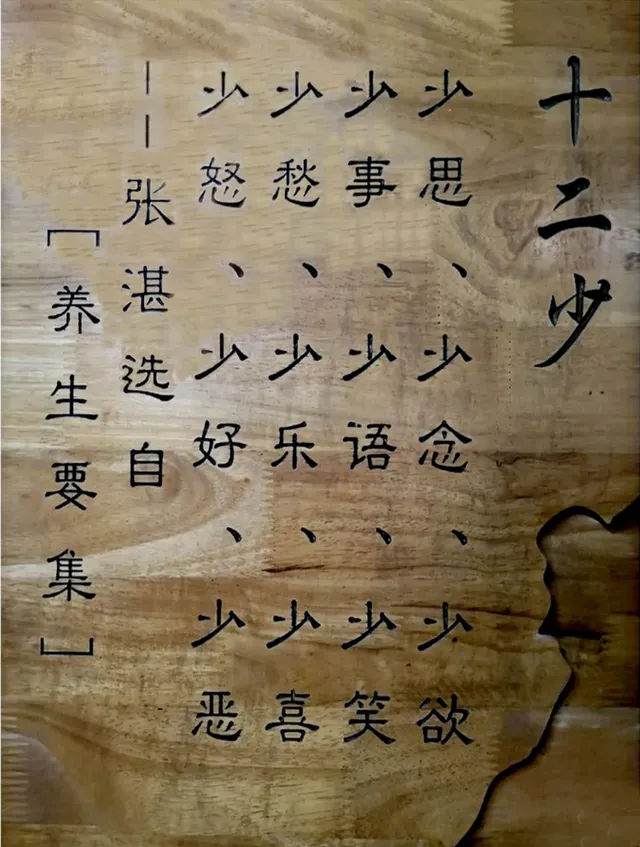 十二少
少思、少念、少欲
少事、少语、少笑
少愁、少乐、少喜
少怒、少好、少恶
——张湛选自
［养生要集］